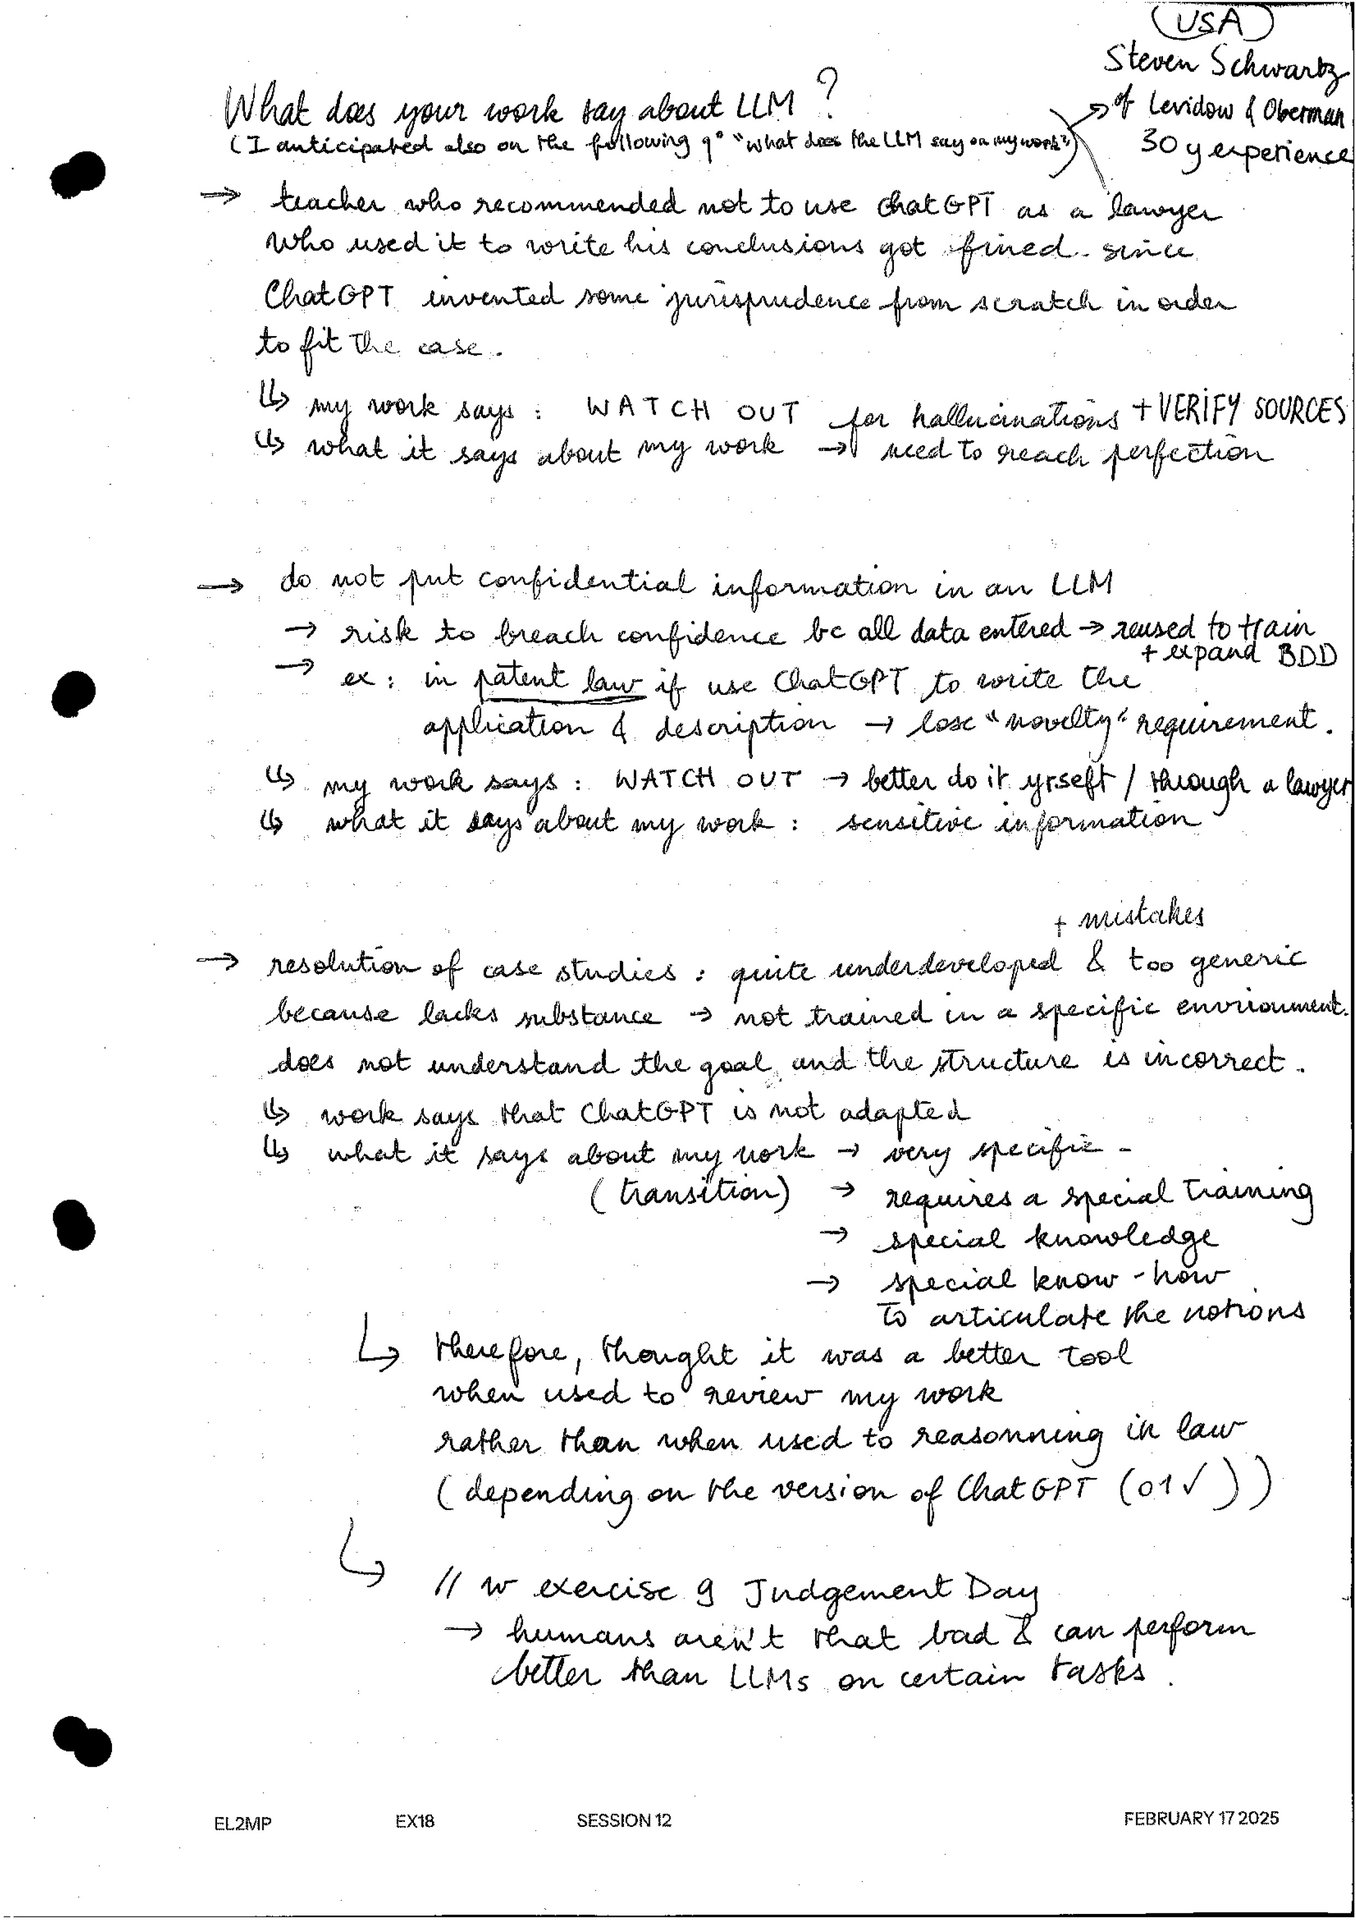 USA
Steven Schwartz
of Levidow & Oberman
30 y experience
What does your work say about LLM ?
(I anticipated also on the following q° "what does the LLM say on my work")
→ teacher who recommended not to use ChatGPT as a lawyer
who used it to write his conclusions got fined since
ChatGPT invented some jurisprudence from scratch in order
to fit the case.
↳ my work says : WATCH OUT for hallucinations + VERIFY SOURCES
↳ what it says about my work → need to reach perfection
→ do not put confidential information in an LLM
→ risk to breach confidence bc all data entered → reused to train
+ expand BDD
→ ex : in patent law if use ChatGPT to write the
application & description → lose "novelty" requirement.
↳ my work says : WATCH OUT → better do it yrself / through a lawyer
↳ what it says about my work : sensitive information
+ mistakes
→ resolution of case studies : quite underdeveloped & too generic
because lacks substance → not trained in a specific envrionment.
does not understand the goal and the structure is incorrect.
↳ work says that ChatGPT is not adapted
↳ what it says about my work → very specific -
(transition) → requires a special training
→ special knowledge
→ special know-how
to articulate the notions
↳ therefore, thought it was a better tool
when used to review my work
rather than when used to reasonning in law
(depending on the version of ChatGPT (o1 √))
↳ // w exercise 9 Judgement Day
→ humans aren't that bad & can perform
better than LLMs on certain tasks.
EL2MP EX18 SESSION 12 FEBRUARY 17 2025